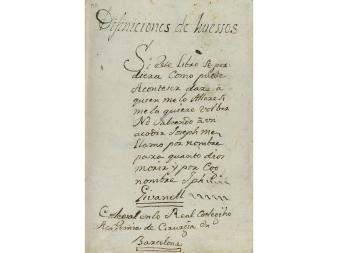 Difiniciones de huessos
Si este libro se per
diera como puede
Acontecer dara à
quien me lo
me lo quiere volber
No Sabendo
acobir Joseph me
llamo por nombre
para quanto dios
morir y por Coo
nombre Jph
Givanell
Colegial en lo Real Colegiho
de Cirurgia en
Barcelona